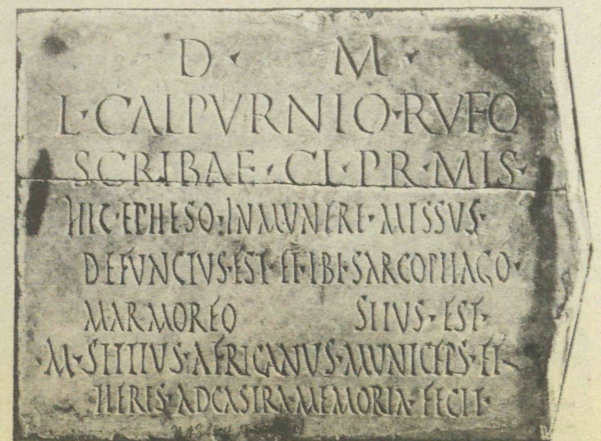 D · M ·
L · CALPVRNIO · RVFO
SCRIBAE · CL · PR · MIS ·
HIC · EPHESO · IN MVNERE · MISSVS ·
DEFVNCTVS · EST · ET · IBI · SARCOPHAGO ·
MARMOREO SITVS · EST ·
· M · SITTIVS · AFRICANVS · MVNICEPS · ET
HERES · AD CASTRA · MEMORIA · FECIT ·